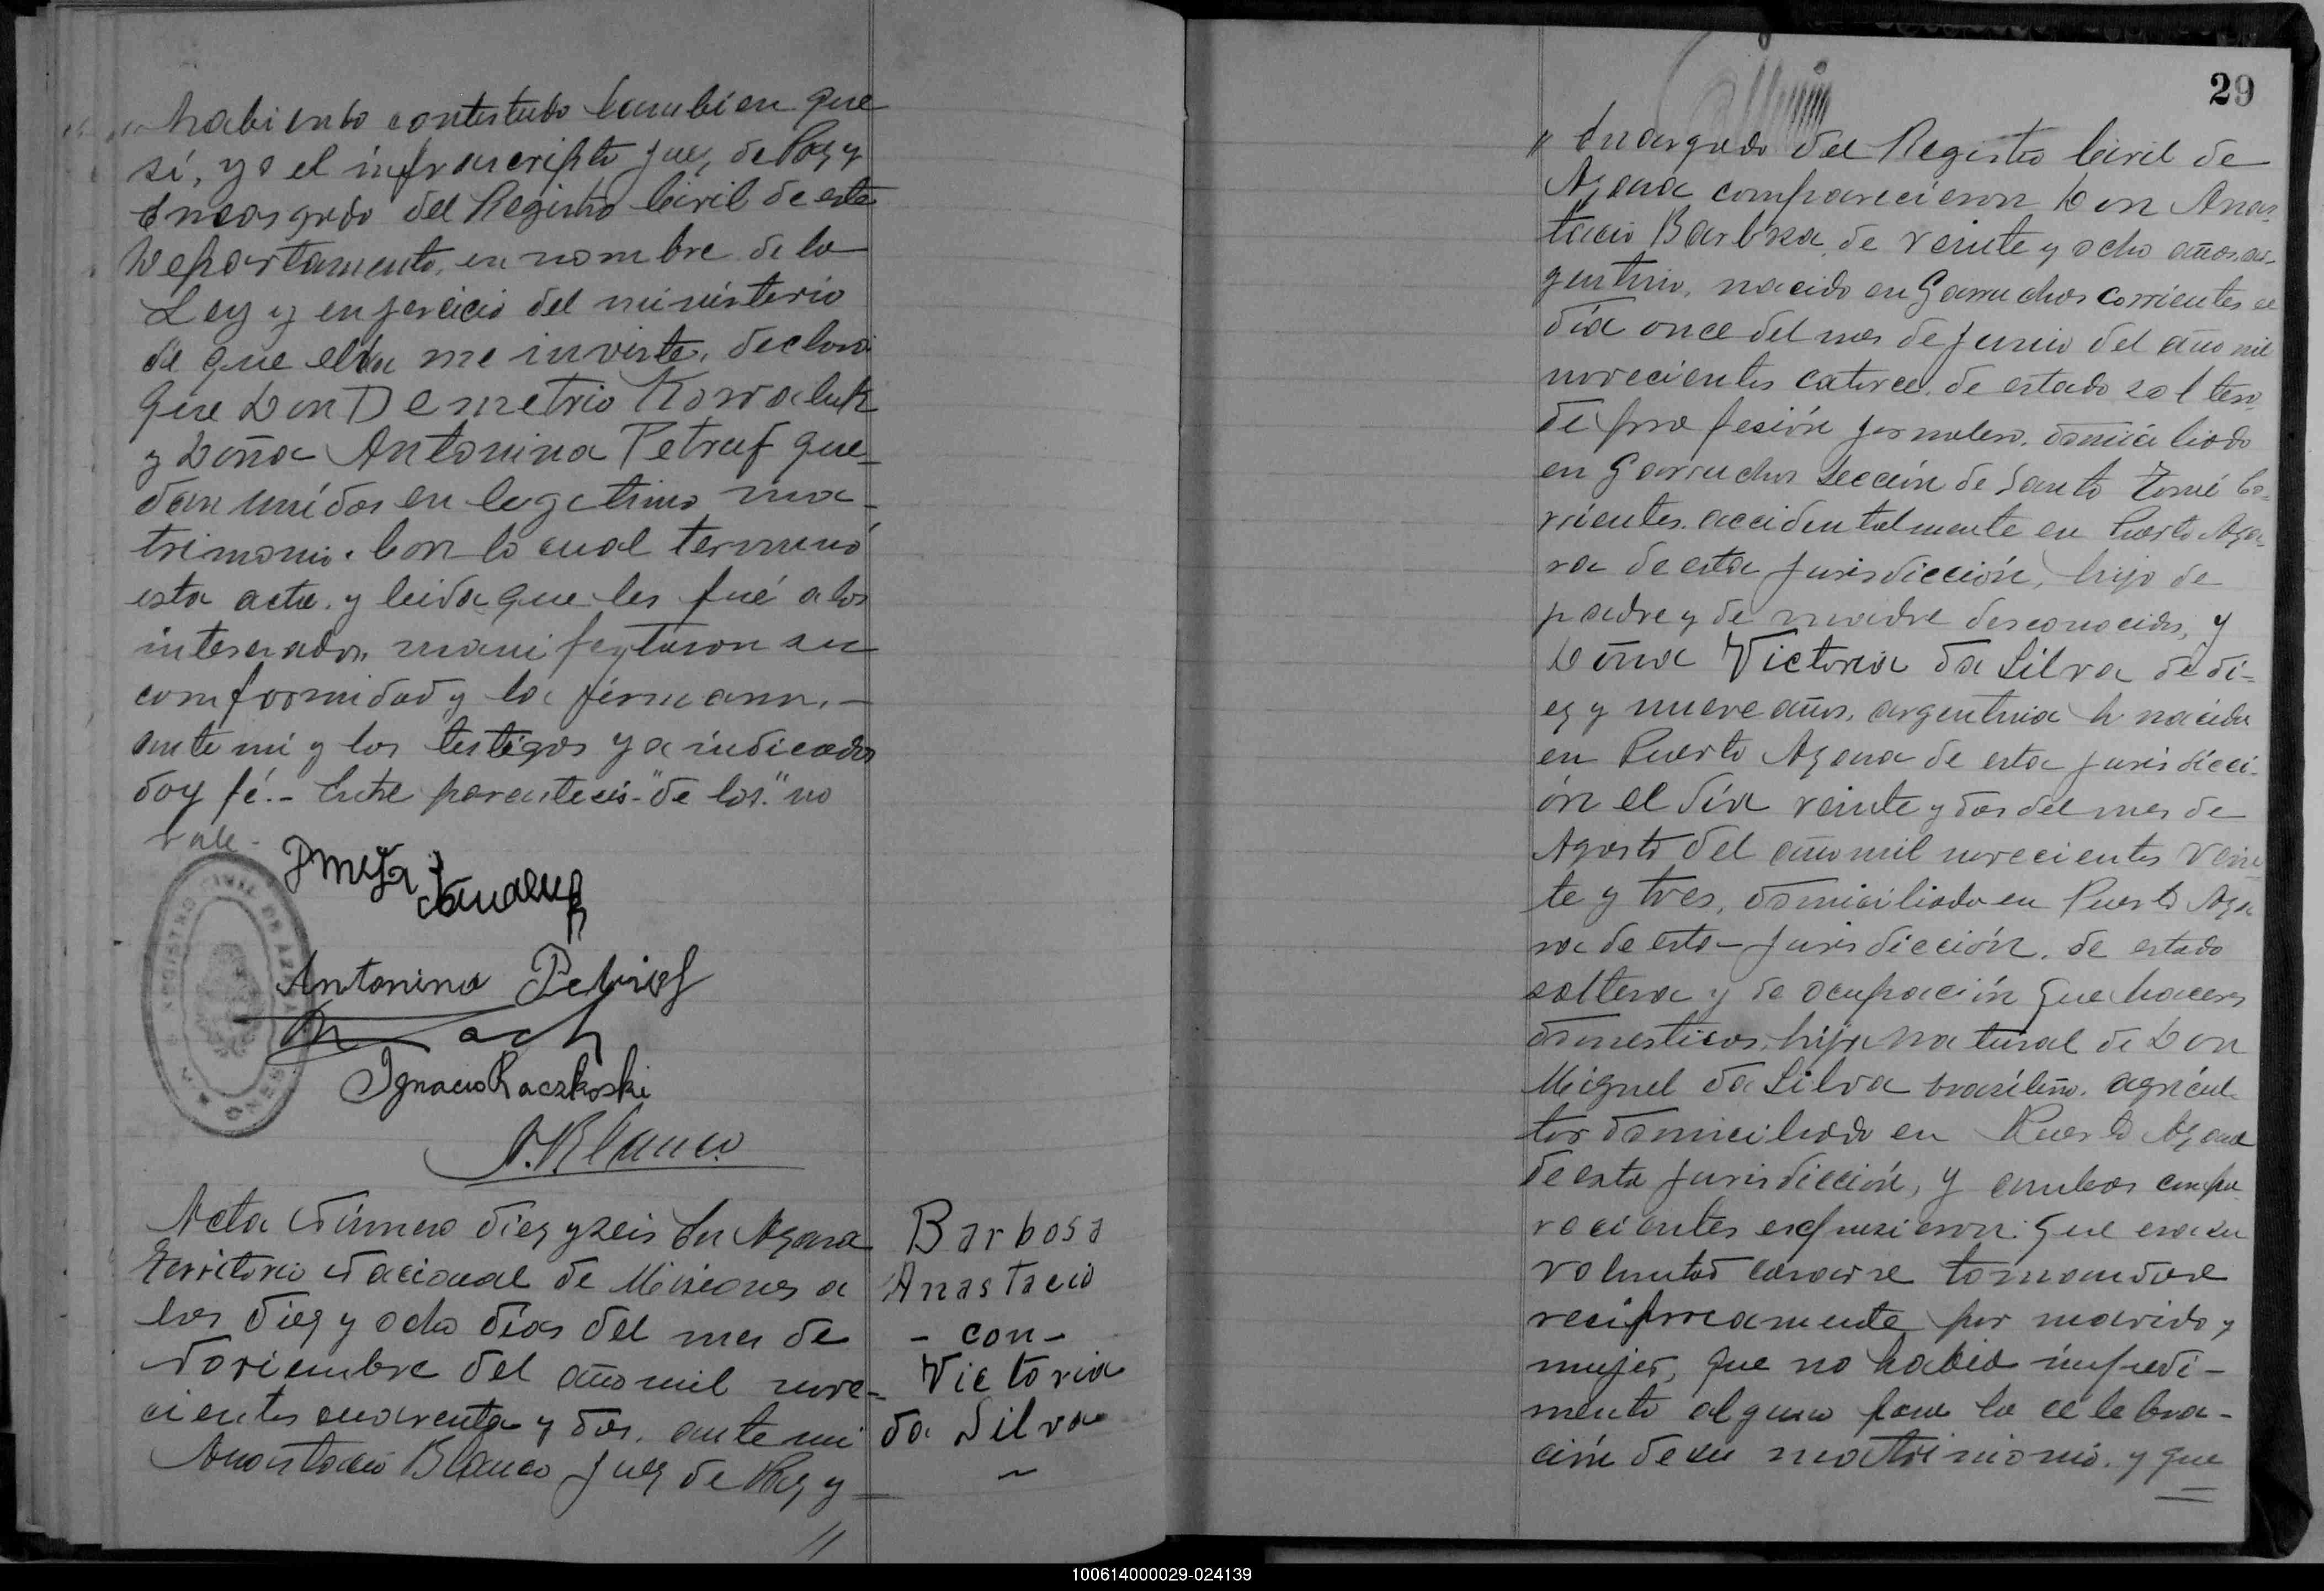 habiendo contestado tambien que
si, yo el infrascripto Juez de Paz y
Encargado del Registro Civil de este
Departamento, en nombre de la
Ley y en jercicio del ministerio
de que ella me inviste, declaro
que Don Demetrio Kowaluk
y Doña Antonina Petruf que-
dan unidos en legitimo ma-
trimonio. Con lo cual terminó
esta acta. y leida que les fué a los
interesados, manifestaron su
conformidad y la firmaron,—
ante mi y los testigos ya indicados
doy fé.- Entre parentecis-"de los." no
vale-
Antonina Petruf
Ignacio Raczkoski
A. Blanco
Acta Número diez y seis En Azara
Territorio Nacional de Misiones a
los diez y ocho dias del mes de
Noviembre del año mil nove-
cientos cuarenta y dos, ante mi
Anastacio Blanco Juez de Paz y
//
Barbosa
Anastacio
- con -
Victoria
da Silva
29
" Encargado del Registro Civil de
Azara comparecieron Don Anas-
tacio Barbosa, de veinte y ocho años, ar-
gentino, nacido en Garruchos Corrientes el
día once del mes de Junio del año mil
novecientos catorce, de estado soltero,
de profesión jornalero, domiciliado
en Garruchos Sección de Santo Tomé Co-
rrientes, accidentalmente en Puerto Aza-
ra de esta jurisdicción, hijo de
padre y de madre desconocidos, y
Doña Victoria da Silva de di-
ez y nueve años, argentina h nacida
en Puerto Azara de esta jurisdicci-
ón el día veinte y dos del mes de
Agosto del año mil novecientos vein-
te y tres, domiciliada en Puerto Aza-
ra de esta jurisdicción, de estado
soltera y de ocupación quehaceres
domesticos, hija natural de Don
Miguel da Silva brasileño, agricul-
tor domiciliado en Puerto Azara
de esta jurisdicción, y ambos compa-
recientes expusieron: Que era su
voluntad casarse tomandose
reciprocamente por marido y
mujer, que no habia impedi-
mento alguno para la celebra-
ción de su matrimonio, y que
100614000029-024139